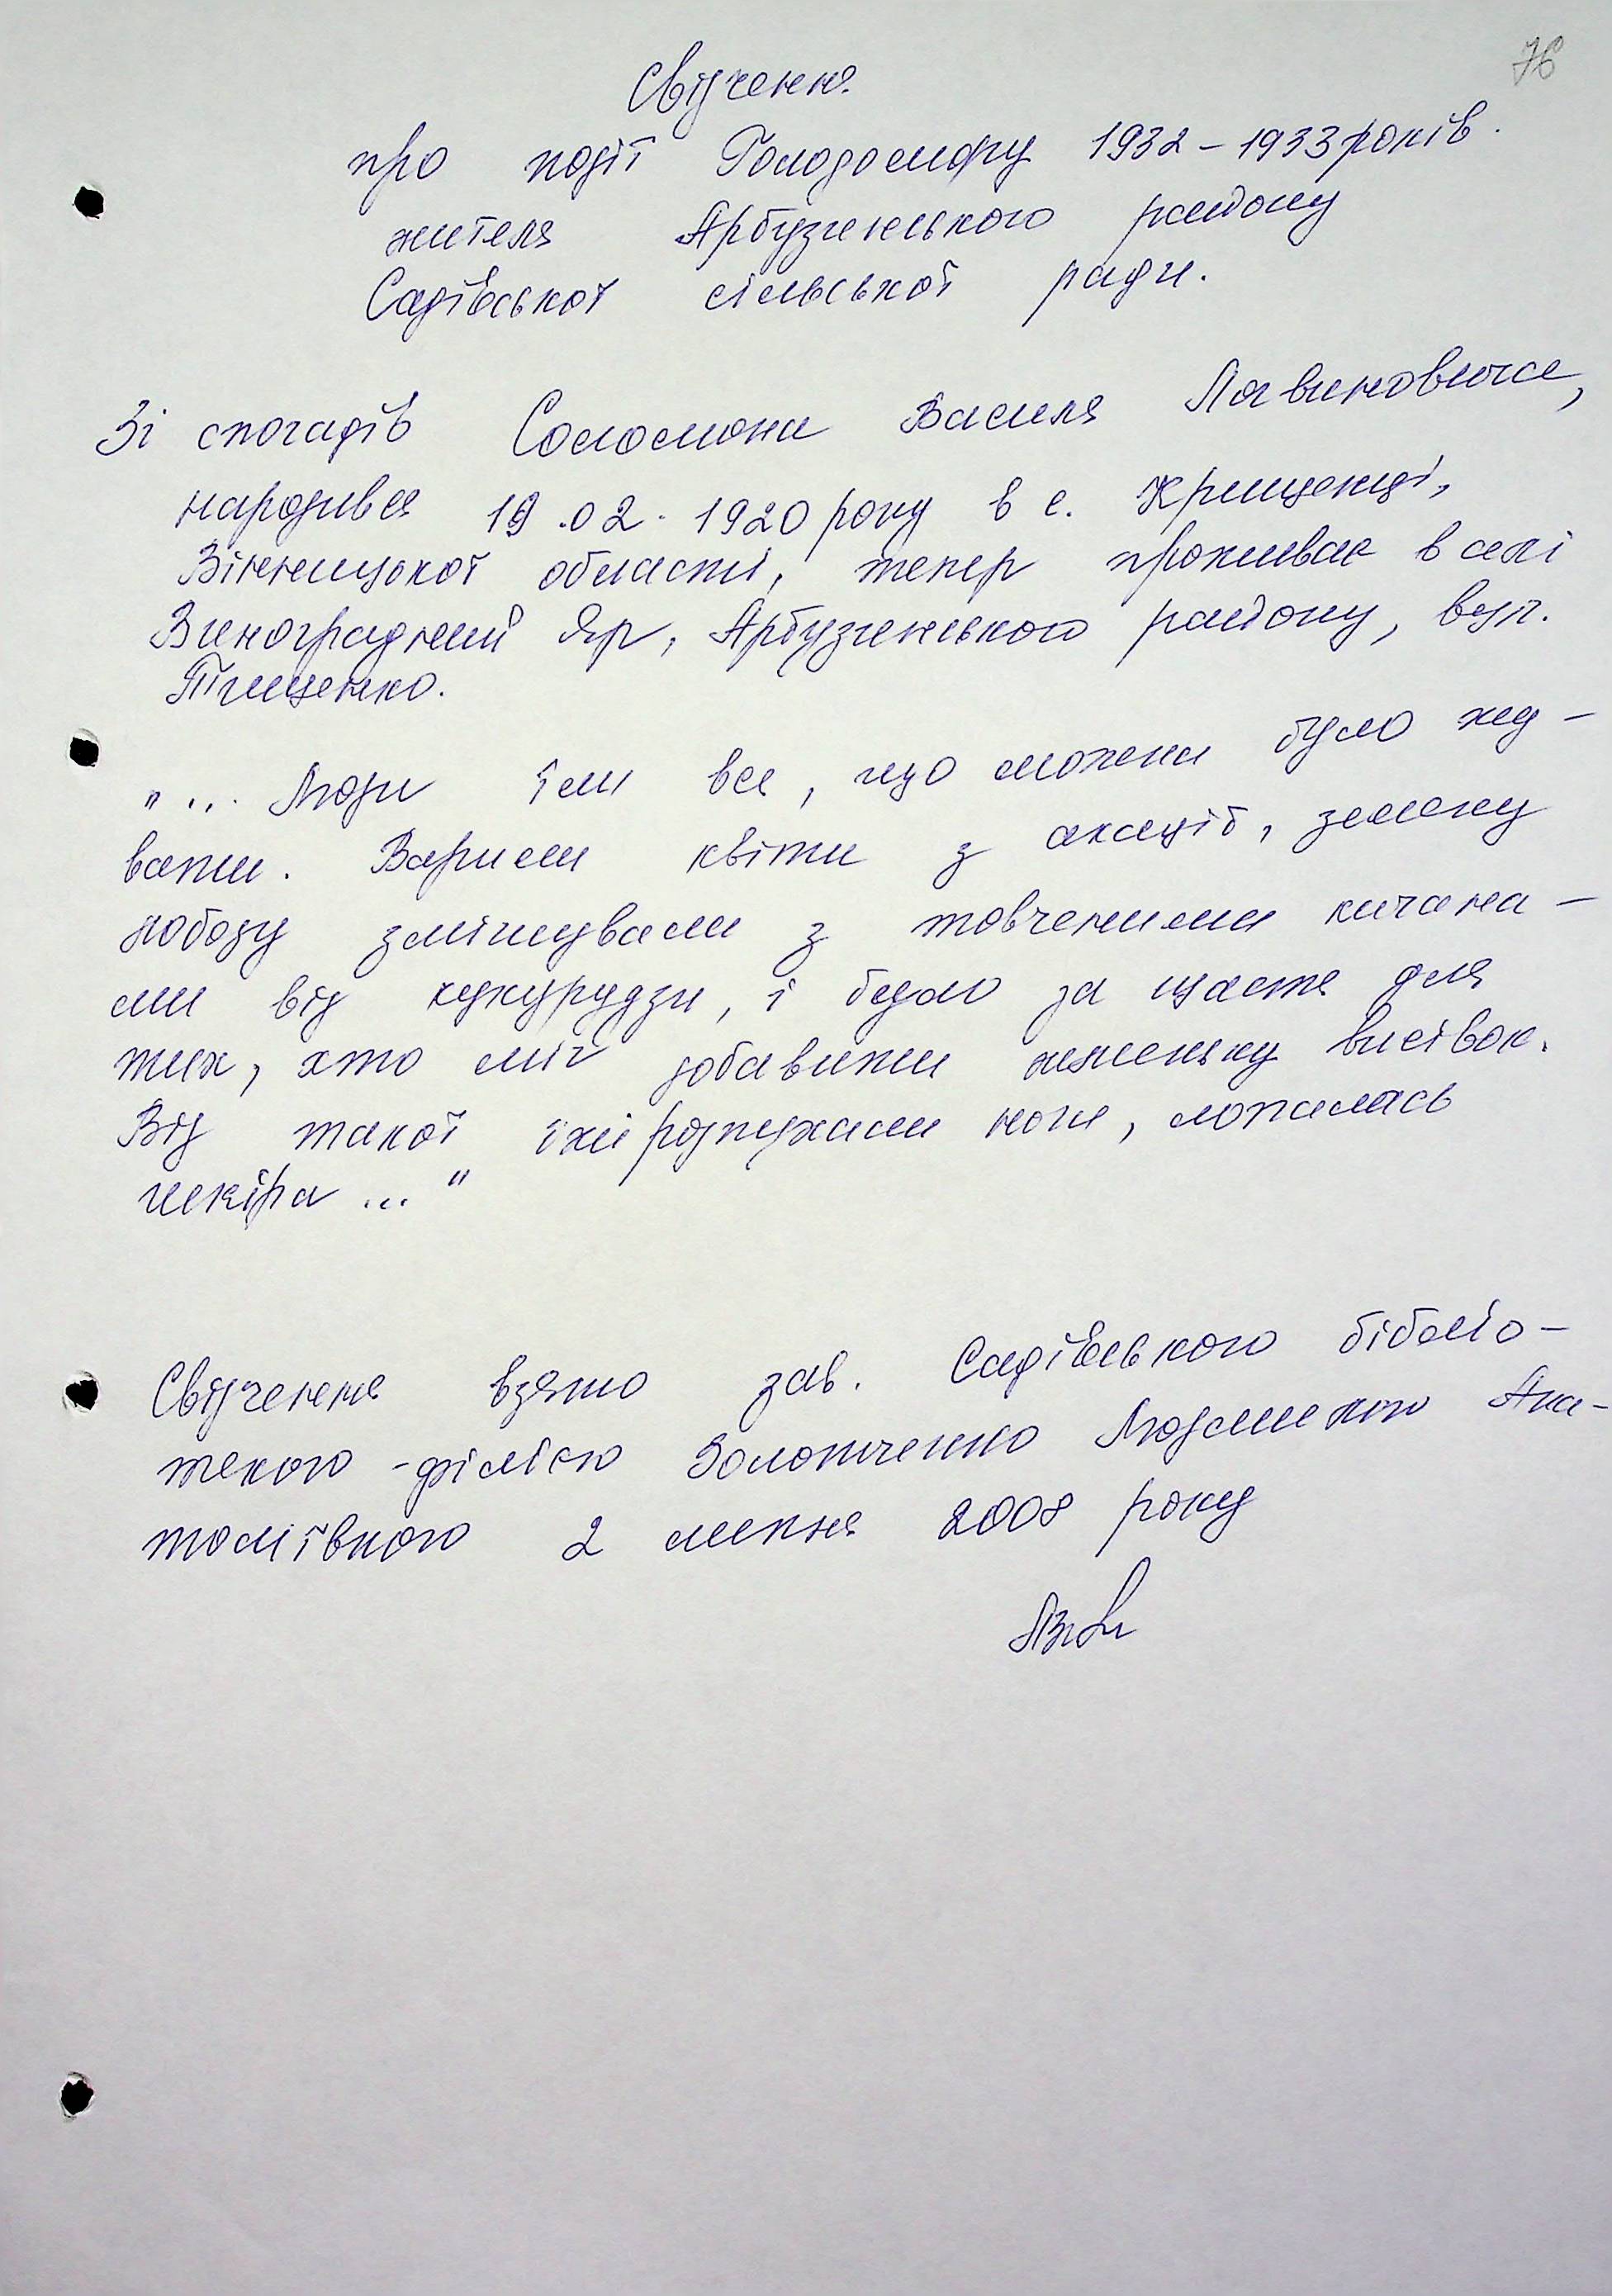 76
Свідчення
про події Голодомору 1932-1933 років.
жителя Арбузинського району
Садівської сільської ради.
Зі спогадів Соломона Василя Логвиновича,
народився 19.02.1920 року в с. Крищенці,
Вінницької області, тепер проживає в селі
Виноградний Яр, Арбузинського району, вул.
Тищенко.
"... Люди їли все, що можна було жу-
вати. Варили квіти з акацій, зелену
лободу змішували з товченими качана-
ми від кукурудзи, і було за щастя для
тих, хто міг добавити жменьку висівок.
Від такої їжі розпухали ноги, лопалась
шкіра ..."
Свідчення взято зав. Садівського бібліо-
текою-філією Золотченко Людмилою Ана-
толіївною 2 липня 2008 року